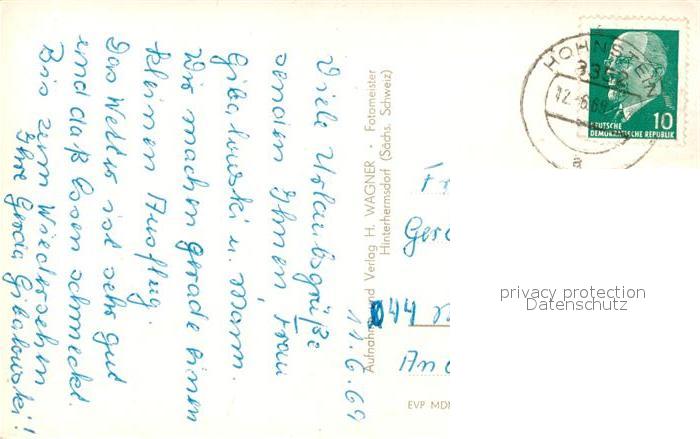 11.6.69
Viele Urlaubsgrüße
senden Ihnen Frau
Gibalowski u. Mann.
Wir machen gerade einen
kleinen Ausflug.
Das Wetter ist sehr gut
und daß Essen schmeckt.
Bis zum Wiedersehn
Ihre Gerda Gibalowski!
Aufnahme und Verlag H. WAGNER · Fotomeister
Hinterhermsdorf (Sächs. Schweiz)
HOHNSTEIN
12.-6.69
a
10
DEUTSCHE
DEMOKRATISCHE REPUBLIK
044
An
EVP MDN
privacy protection
Datenschutz